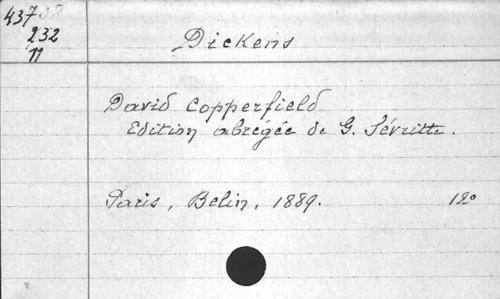 437
232
11
Dickens
David Copperfield
Edition abrégée de G. Sévrette.
Paris, Belin, 1889. 12°